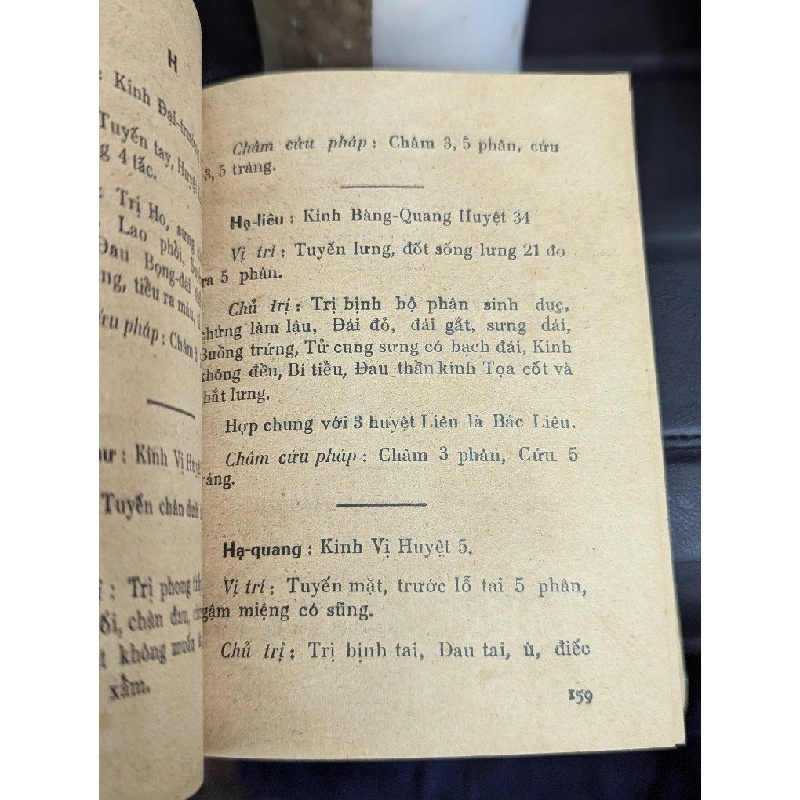 H
Kinh Đại-trường
Tuyến tay, Huyệt
4 tấc.
Trị Ho, sưng
Lao phổi,
Đau Bọng-đái
tiều ra máu,
cứu pháp : Châm
Kinh Vị Huyệt
Tuyến chân dưới
Trị phong
chân đau,
không muốn
xẳm.
Châm cứu pháp : Châm 3, 5 phân, cứu
3, 5 tráng.
Hạ-liêu : Kinh Bàng-Quang Huyệt 34
Vị trí : Tuyến lưng, đốt sống lưng 21 đo
ra 5 phân.
Chủ trị : Trị bịnh bộ phận sinh dục,
chứng lâm lậu, Đái đỏ, đái gắt, sưng dái,
Buồng trứng, Tử cung sưng có bạch đái, Kinh
không đều, Bí tiều, Đau thần kinh Tọa cốt và
thắt lưng.
Hợp chung với 3 huyệt Liên là Bác Liêu.
Châm cứu pháp : Châm 3 phân, Cứu 5
tráng.
Hạ-quang : Kinh Vị Huyệt 5.
Vị trí : Tuyến mặt, trước lỗ tai 5 phân,
ngậm miệng có sũng.
Chủ trị : Trị bịnh tai, Đau tai, ù, điếc
159